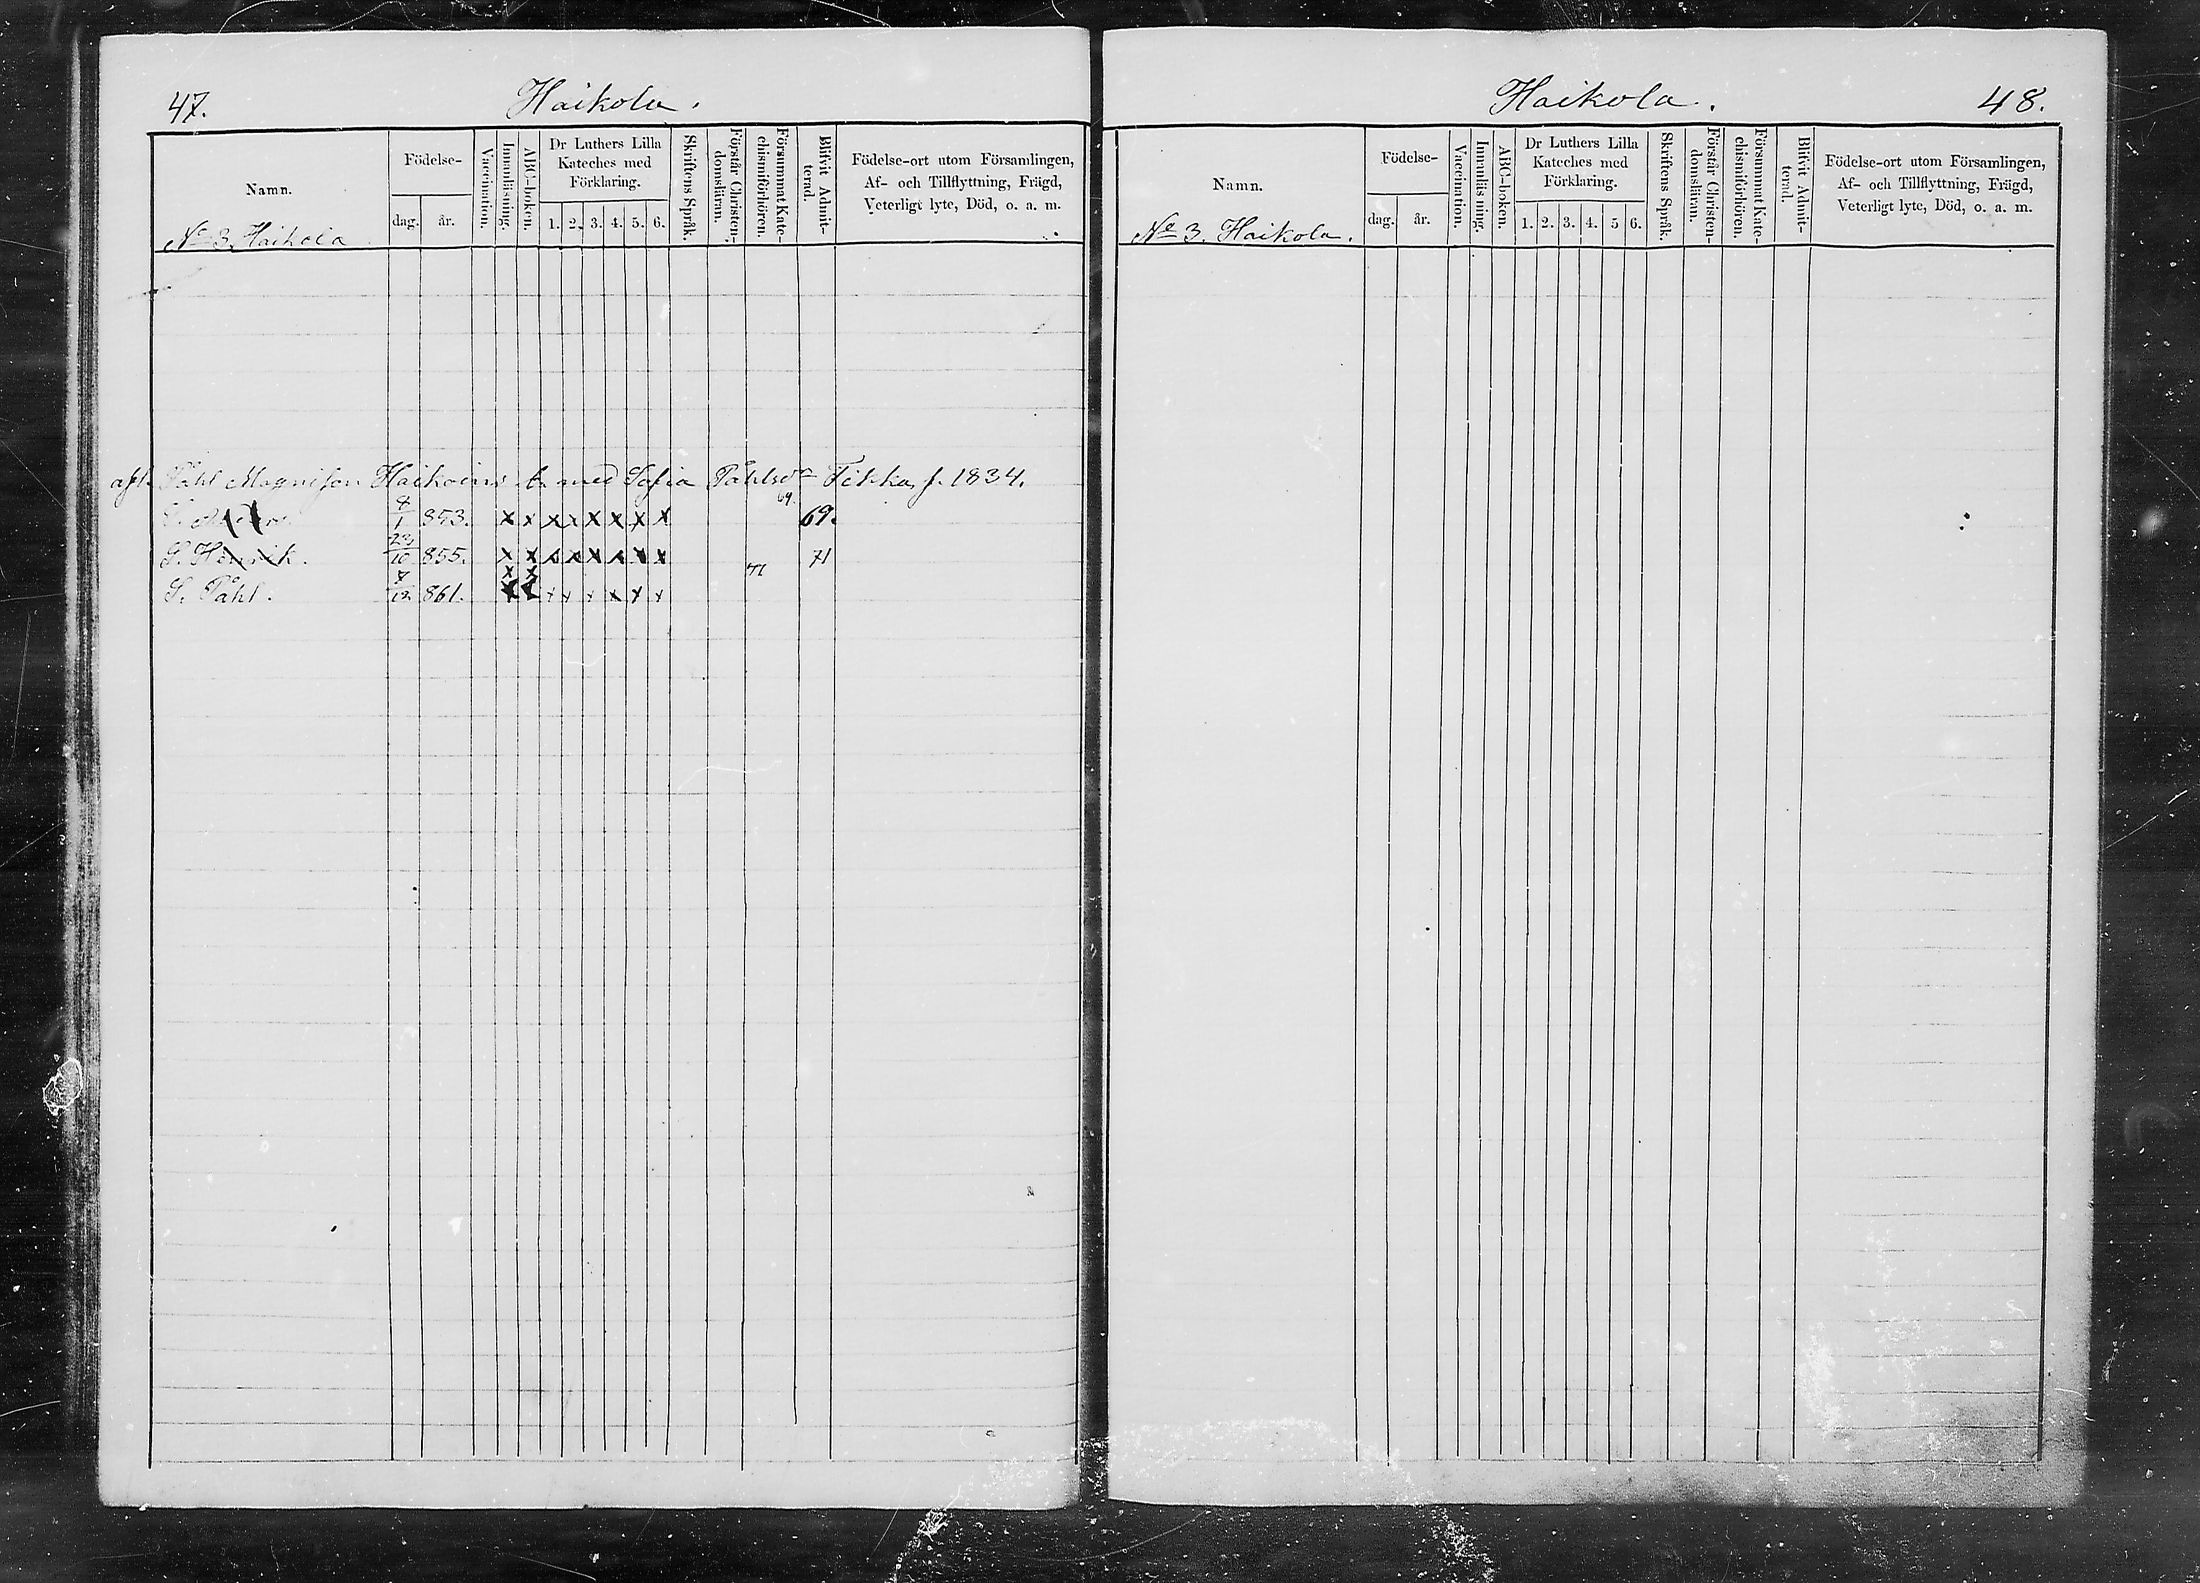 47. Haikola.
Namn.
Födelse-
dag. år.
Vaccination.
Innanläsning.
ABC-boken.
Dr Luthers Lilla
Kateches med
Förklaring.
1. 2. 3. 4. 5. 6.
Skriftens Språk.
Förstår Christen-
domsläran.
Försummat Kate-
chismiförhören.
Blifvit Admit-
terad.
Födelse-ort utom Församlingen,
Af- och Tillflyttning, Frägd,
Veterligt lyte, Död, o. a. m.
No 3. Haikola
Påhl Magnisson Haikoin med Sofia Påhlsdr Tikka f. 1834.
69.
S. 8/1 853. x x x x x x x x 69.
S. Henrik. 23/10 855. x x x x x x x x 71
x x 71
S. Påhl. 7/12 861. x x x x x x x x
Haikola. 48.
Namn.
Födelse-
dag. år.
Vaccination.
Innanläsning.
ABC-boken.
Dr Luthers Lilla
Kateches med
Förklaring.
1. 2. 3. 4. 5 6.
Skriftens Språk.
Förstår Christen-
domsläran.
Försummat Kate-
chismiförhören.
Blifvit Admit-
terad.
Födelse-ort utom Församlingen,
Af- och Tillflyttning, Frägd,
Veterligt lyte, Död, o. a. m.
No 3. Haikola.